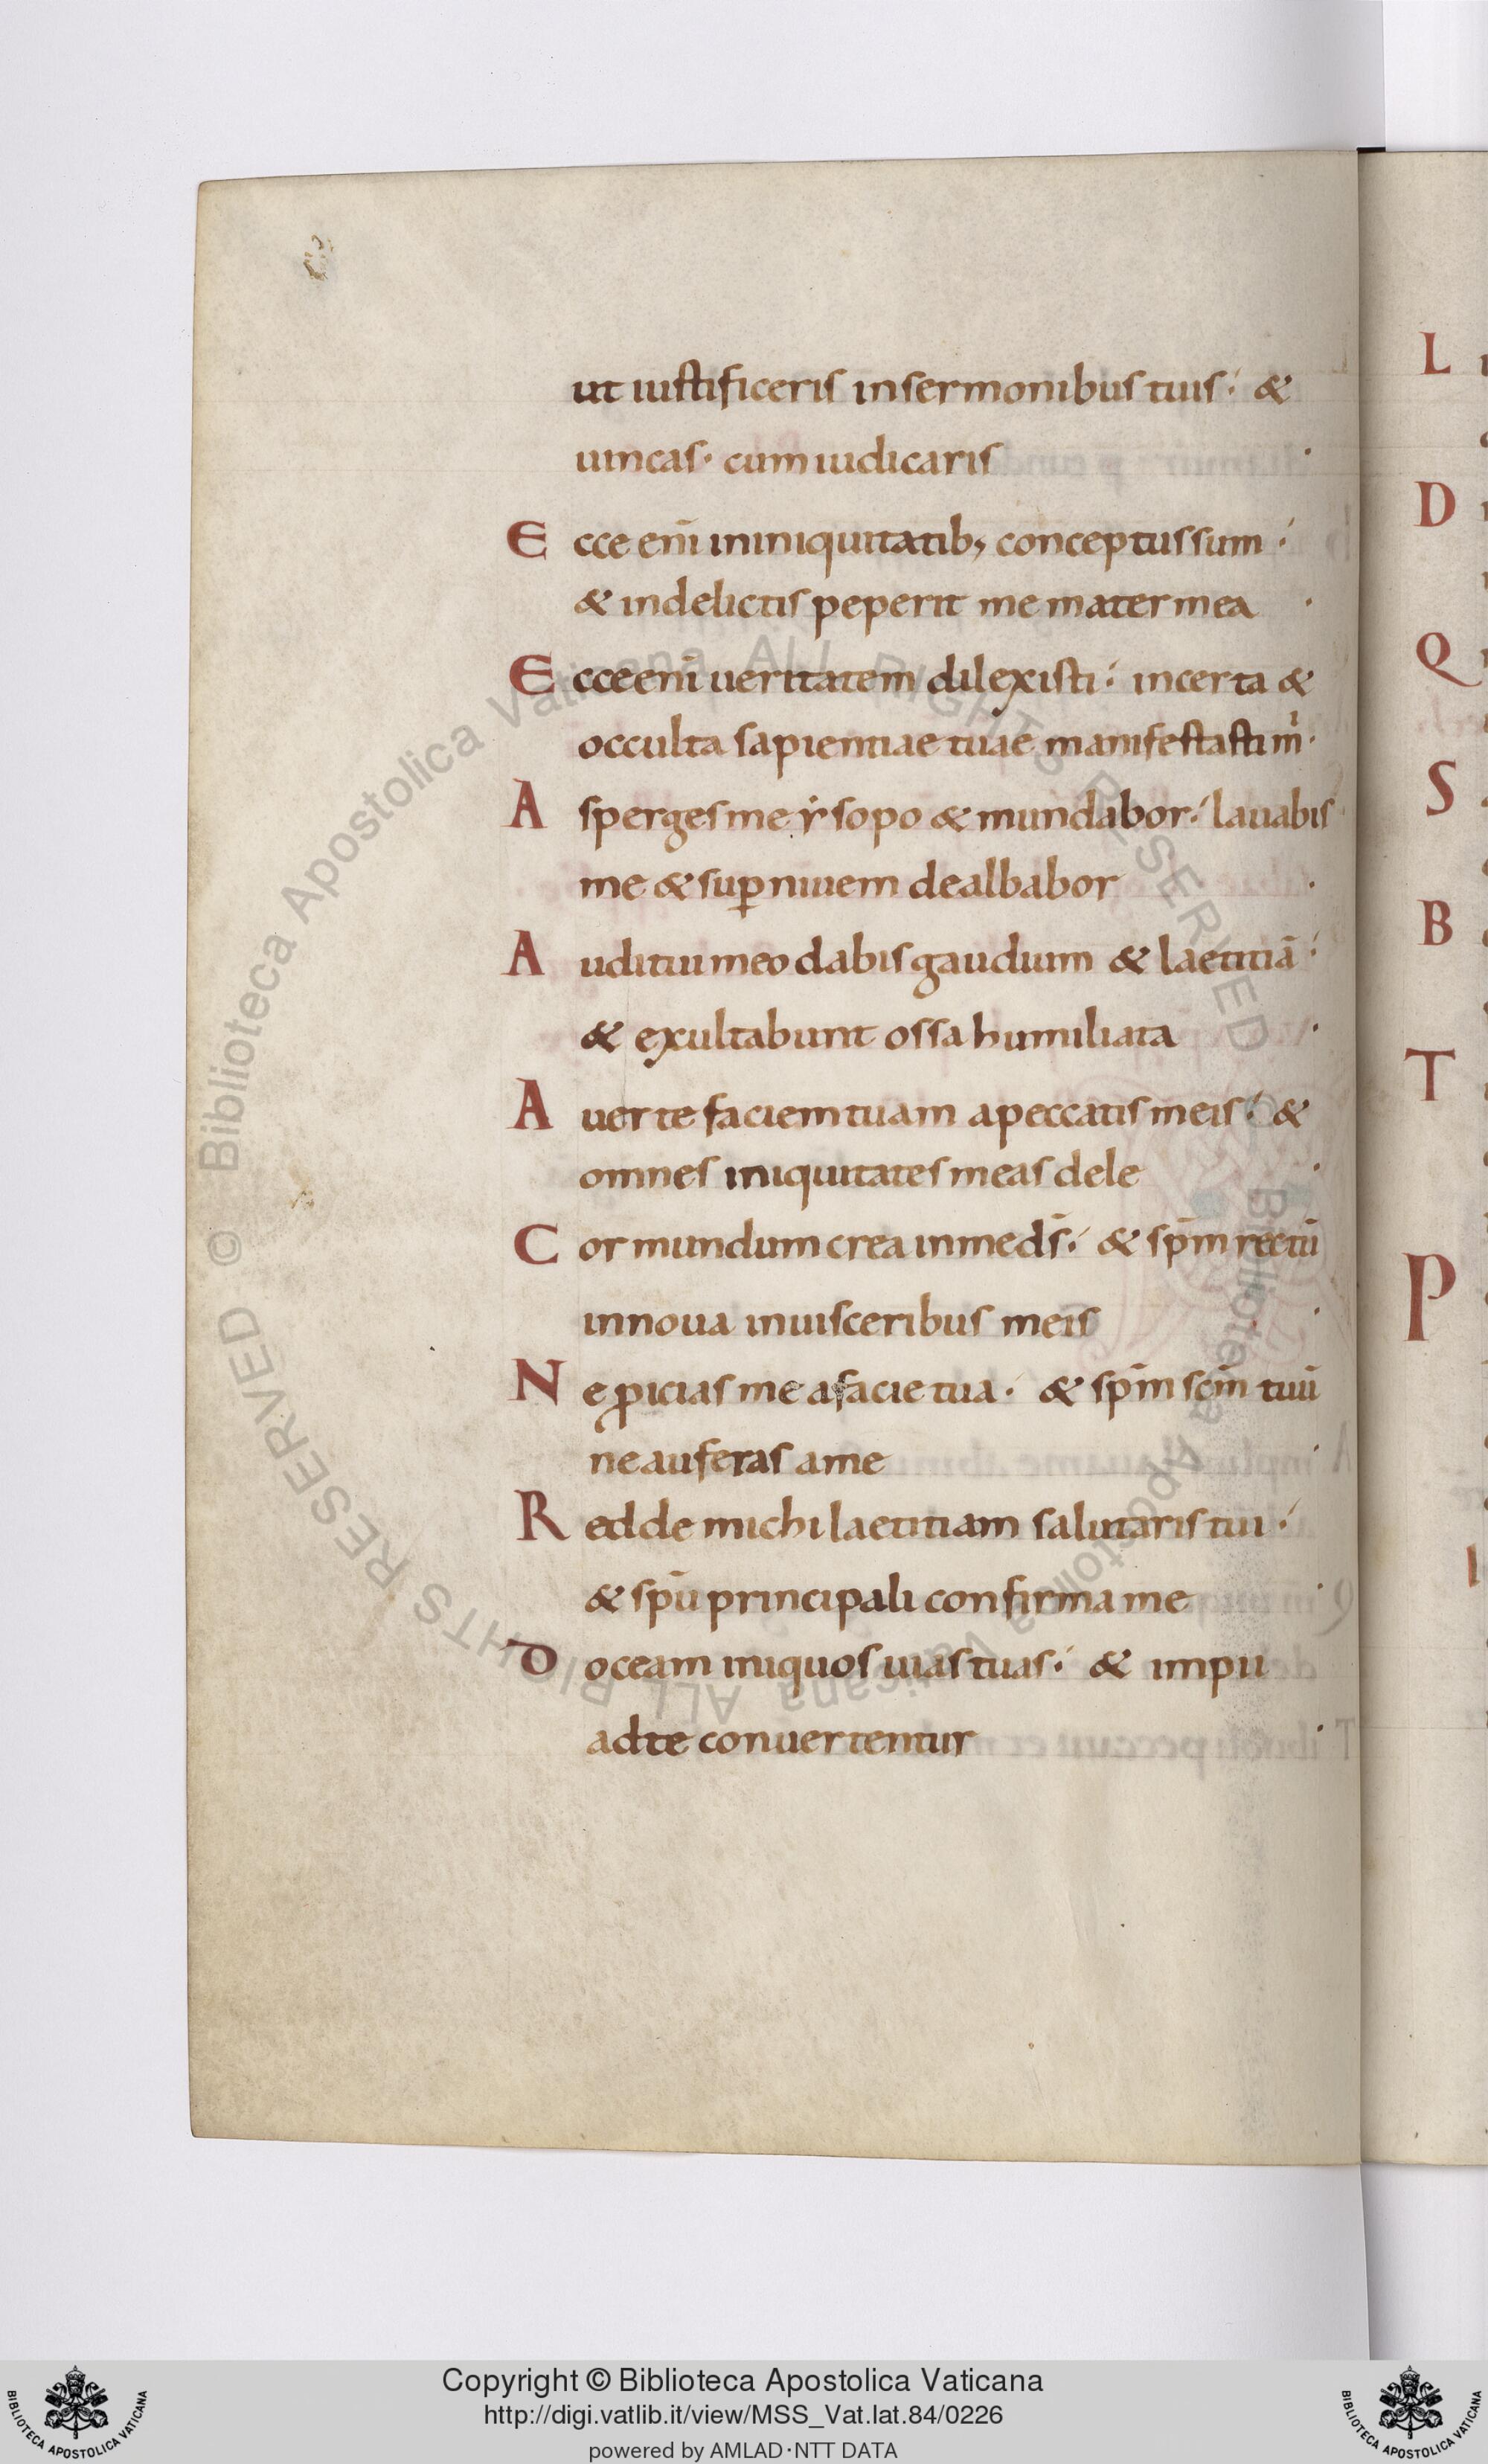 ut iustificeris insermonibus tuis ⁖ &
uincas · cum iudicaris ·
Ecce eni̅ ininiquitatib; conceptus sum ⁖
& indelictis peperit me mater mea ·
Ecce eni̅ ueritatem dilexisti ⁖ incerta &
occulta sapientiae tuae manifestasti m̍ ·
Asperges me ẏsopo & mundabor ⁖ lauabis
me & suꝑ niuem dealbabor ·
Auditui meo dabis gaudium & laetitia̅ ⁖
& exultabunt ossa humiliata ·
Auerte faciem tuam apeccatis meis ⁖ &
omnes iniquitates meas dele ·
Cor mundum crea inme ds̅ ⁖ & sp̅m rectu̅
innoua inuisceribus meis ·
Ne ꝓicias me afacie tua ⁖ & sp̅m sc̅m tuu̅
ne auferas ame ·
Redde michi laetitiam salutaris tui ⁖
& sp̅u principali confirma me ·
Doceam iniquos uias tuas ⁖ & impii
adte conuertentur ·
L
D
Q
S
B
T
P
© Biblioteca Apostolica Vaticana ALL RIGHTS RESERVED © Biblioteca Apostolica Vaticana ALL RIGHTS RESERVED
Copyright © Biblioteca Apostolica Vaticana
http://digi.vatlib.it/view/MSS_Vat.lat.84/0226
powered by AMLAD·NTT DATA
BIBLIOTECA APOSTOLICA VATICANA
BIBLIOTECA APOSTOLICA VATICANA